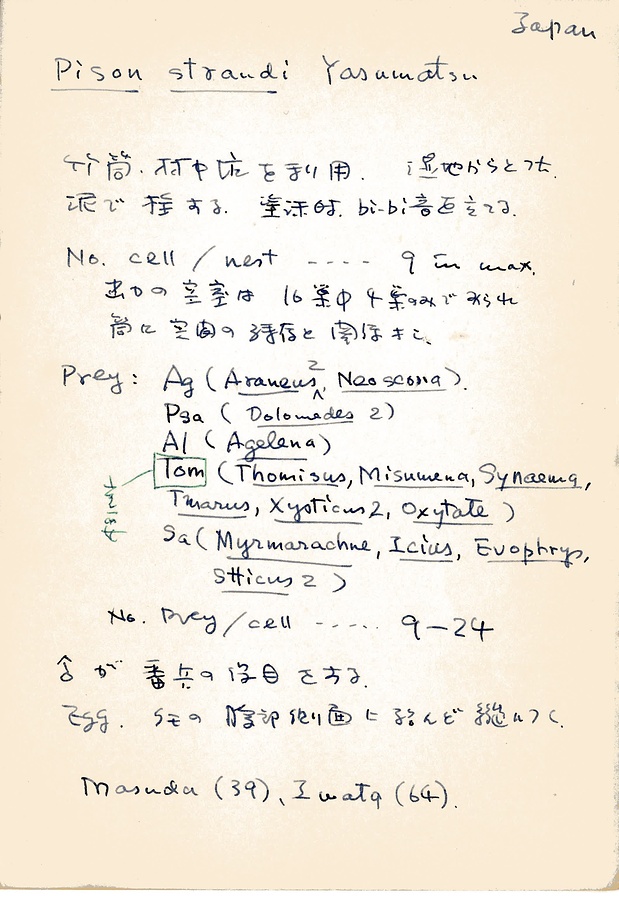 Japan
Pison strandi Yasumatsu
竹筒、材中坑を利用。湿地からとった
泥で 種する。塗沫時、bi-bi音を立てる。
No. cell / nest ---- 9 in max.
空室は 16巣中 4巣のみでみられ
筒に空間の残存と関係キシ、
Prey: Ag (Araneus 2, Neoscona).
Psa (Dolomedes 2)
Al (Agelena)
Tom (Thomisus, Misumena, Synaema,
Tmarus, Xysticus 2, Oxytate)
Sa (Myrmarachne, Icius, Evophrys,
Sitticus 2)
No. Prey/cell ----- 9–24
♂が 番兵の役目をする。
Egg. クモの 腹部側面に
Masuda (39)、Iwata (64).